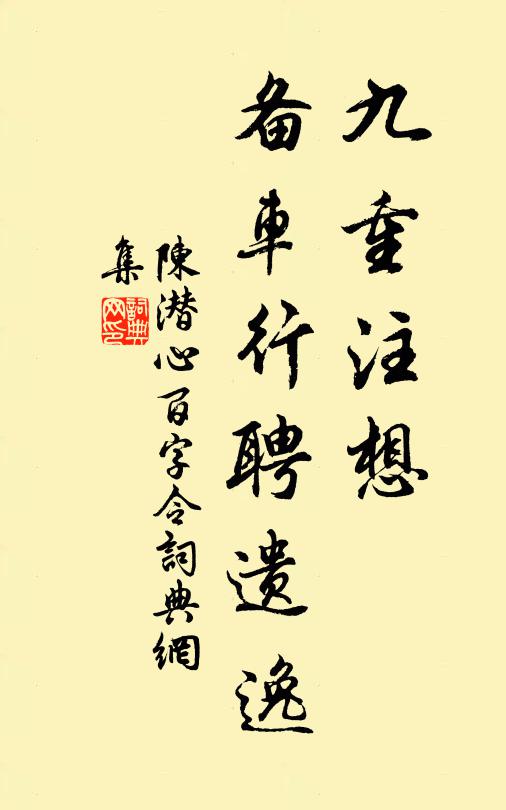 九重注想
备车行聘遗逸
陳潜心百字令詞典網
集
詞典
网印